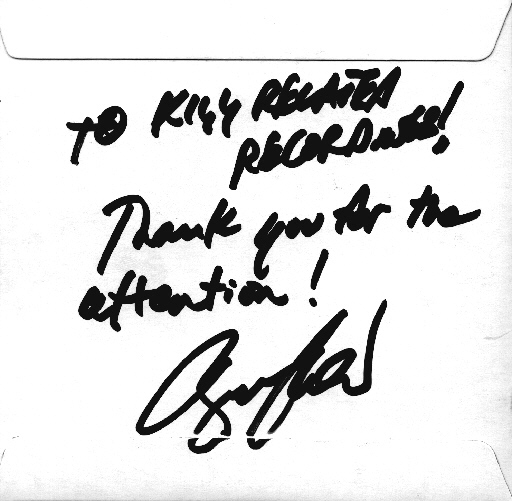 TO KILL RELATED
RECORDINGS!
Thank you for the
attention!